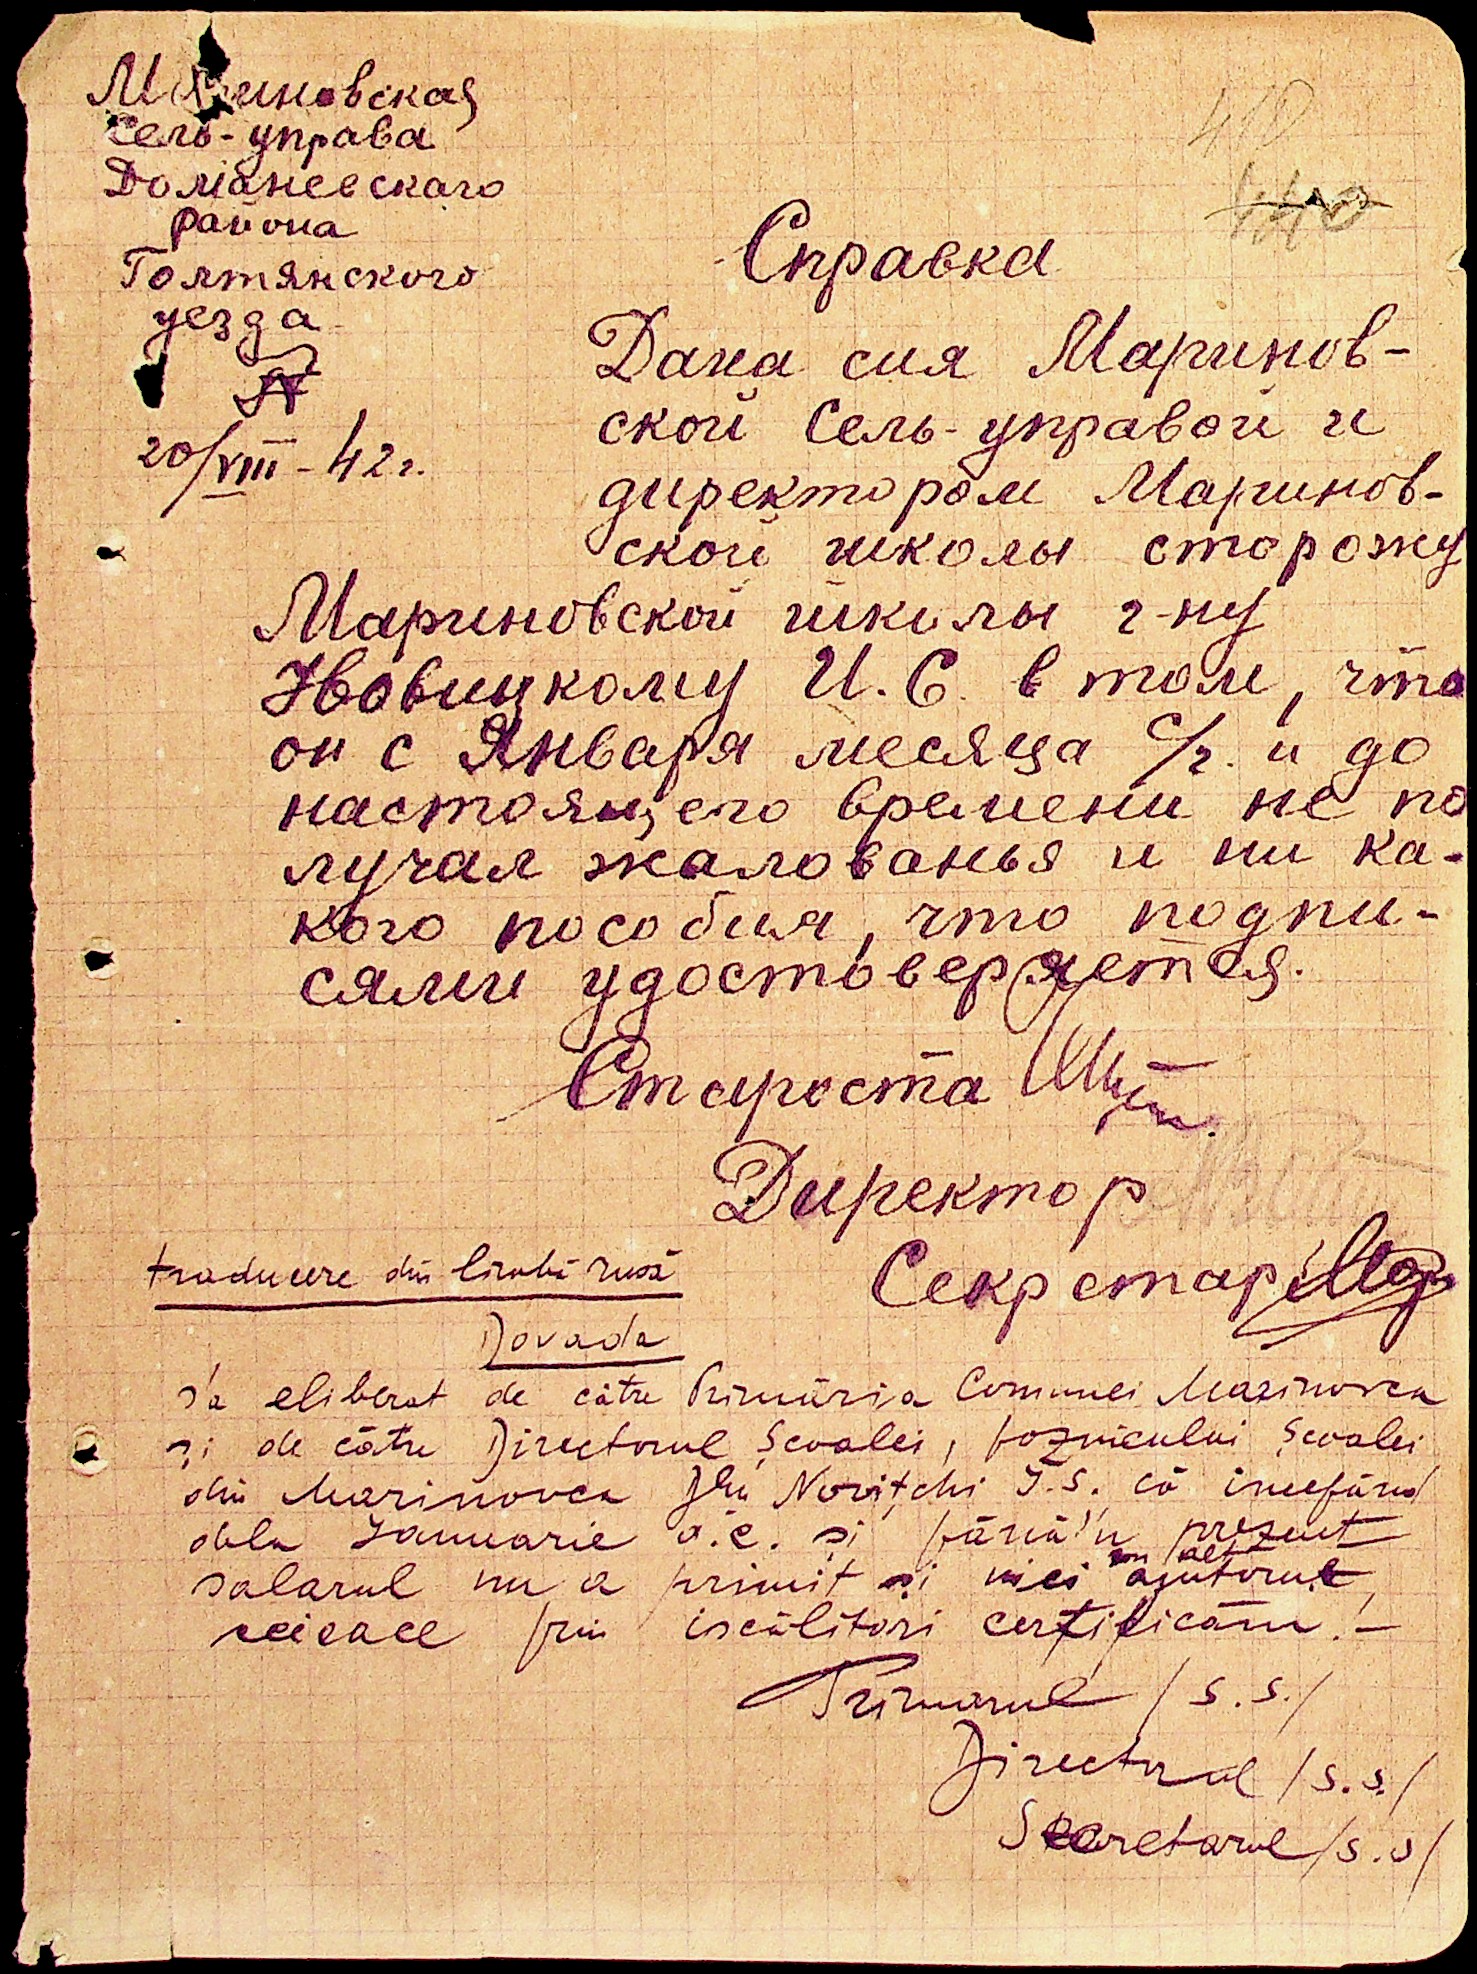 Мариновская
Сель-управа
Доманевскаго
района
Голтянского
уезда
20/VIII - 42 г.
410
Справка
Дана сия Маринов-
ской Сель-управой и
директором Маринов-
ской школы сторожу
Мариновской школы г-ну
Новицкому И. С. в том, что
он с Января месяца с/г. и до
настоящего времени не по
лучал жалованья и ни ка-
кого пособия, что подпи-
сями удостоверяется.
Староста
Директор
Секретарь
traducere din limba rusă
Dovada
s'a eliberat de către Primăria Comunei Marinovca
și de către Directorul Școalei, paznicului Școalei
din Marinovca Dlui Novițchi I.S. că începând
dela Januarie a.c. și până'n prezent
salarul nu a primit și nici un alt ajutor
ceiace prin iscălituri certificăm. -
Primarul /s.s./
Directorul /s.s./
Secretarul /s.s/